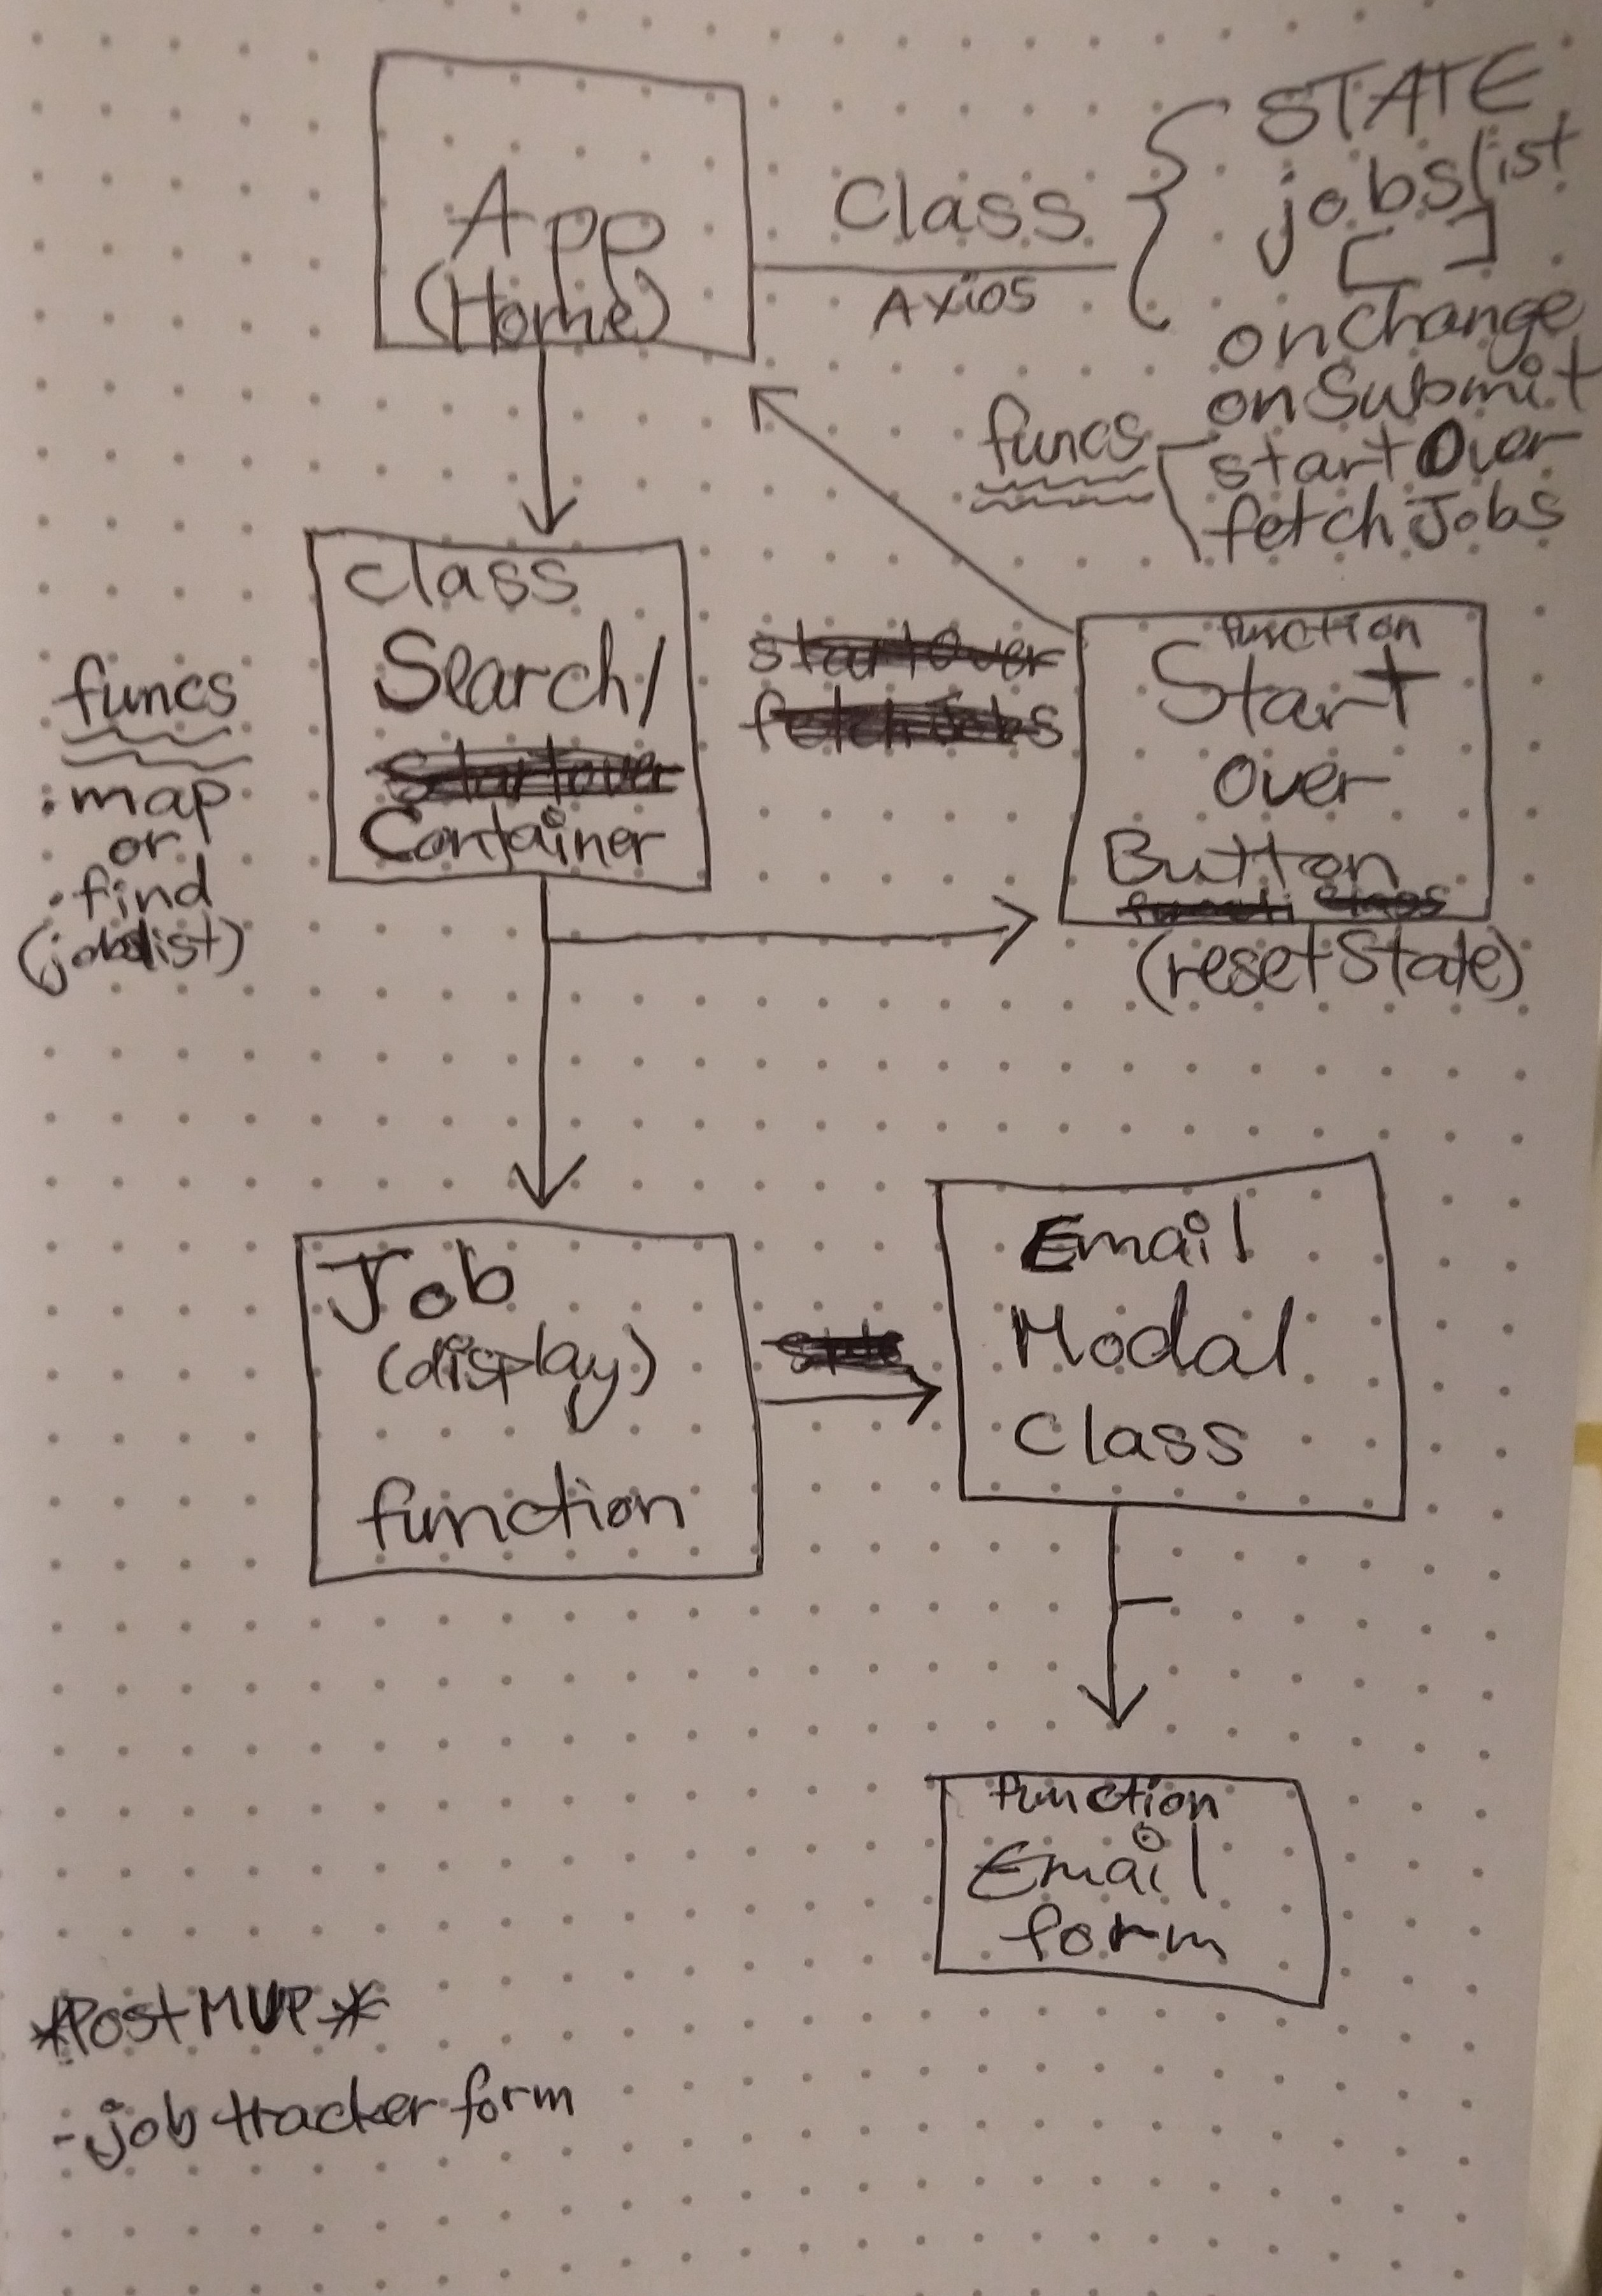 App
(Home)
Class
Axios
STATE
jobslist
[ ]
onChange
onSubmit
startOver
fetchJobs
funcs
class
Search/
startover
Container
funcs
. map
or
. find
(jobslist)
startOver
fetchJobs
function
Start
Over
Button
class
(resetState)
Job
(display)
function
Email
Modal
Class
function
Email
form
*Post MVP*
- job tracker form